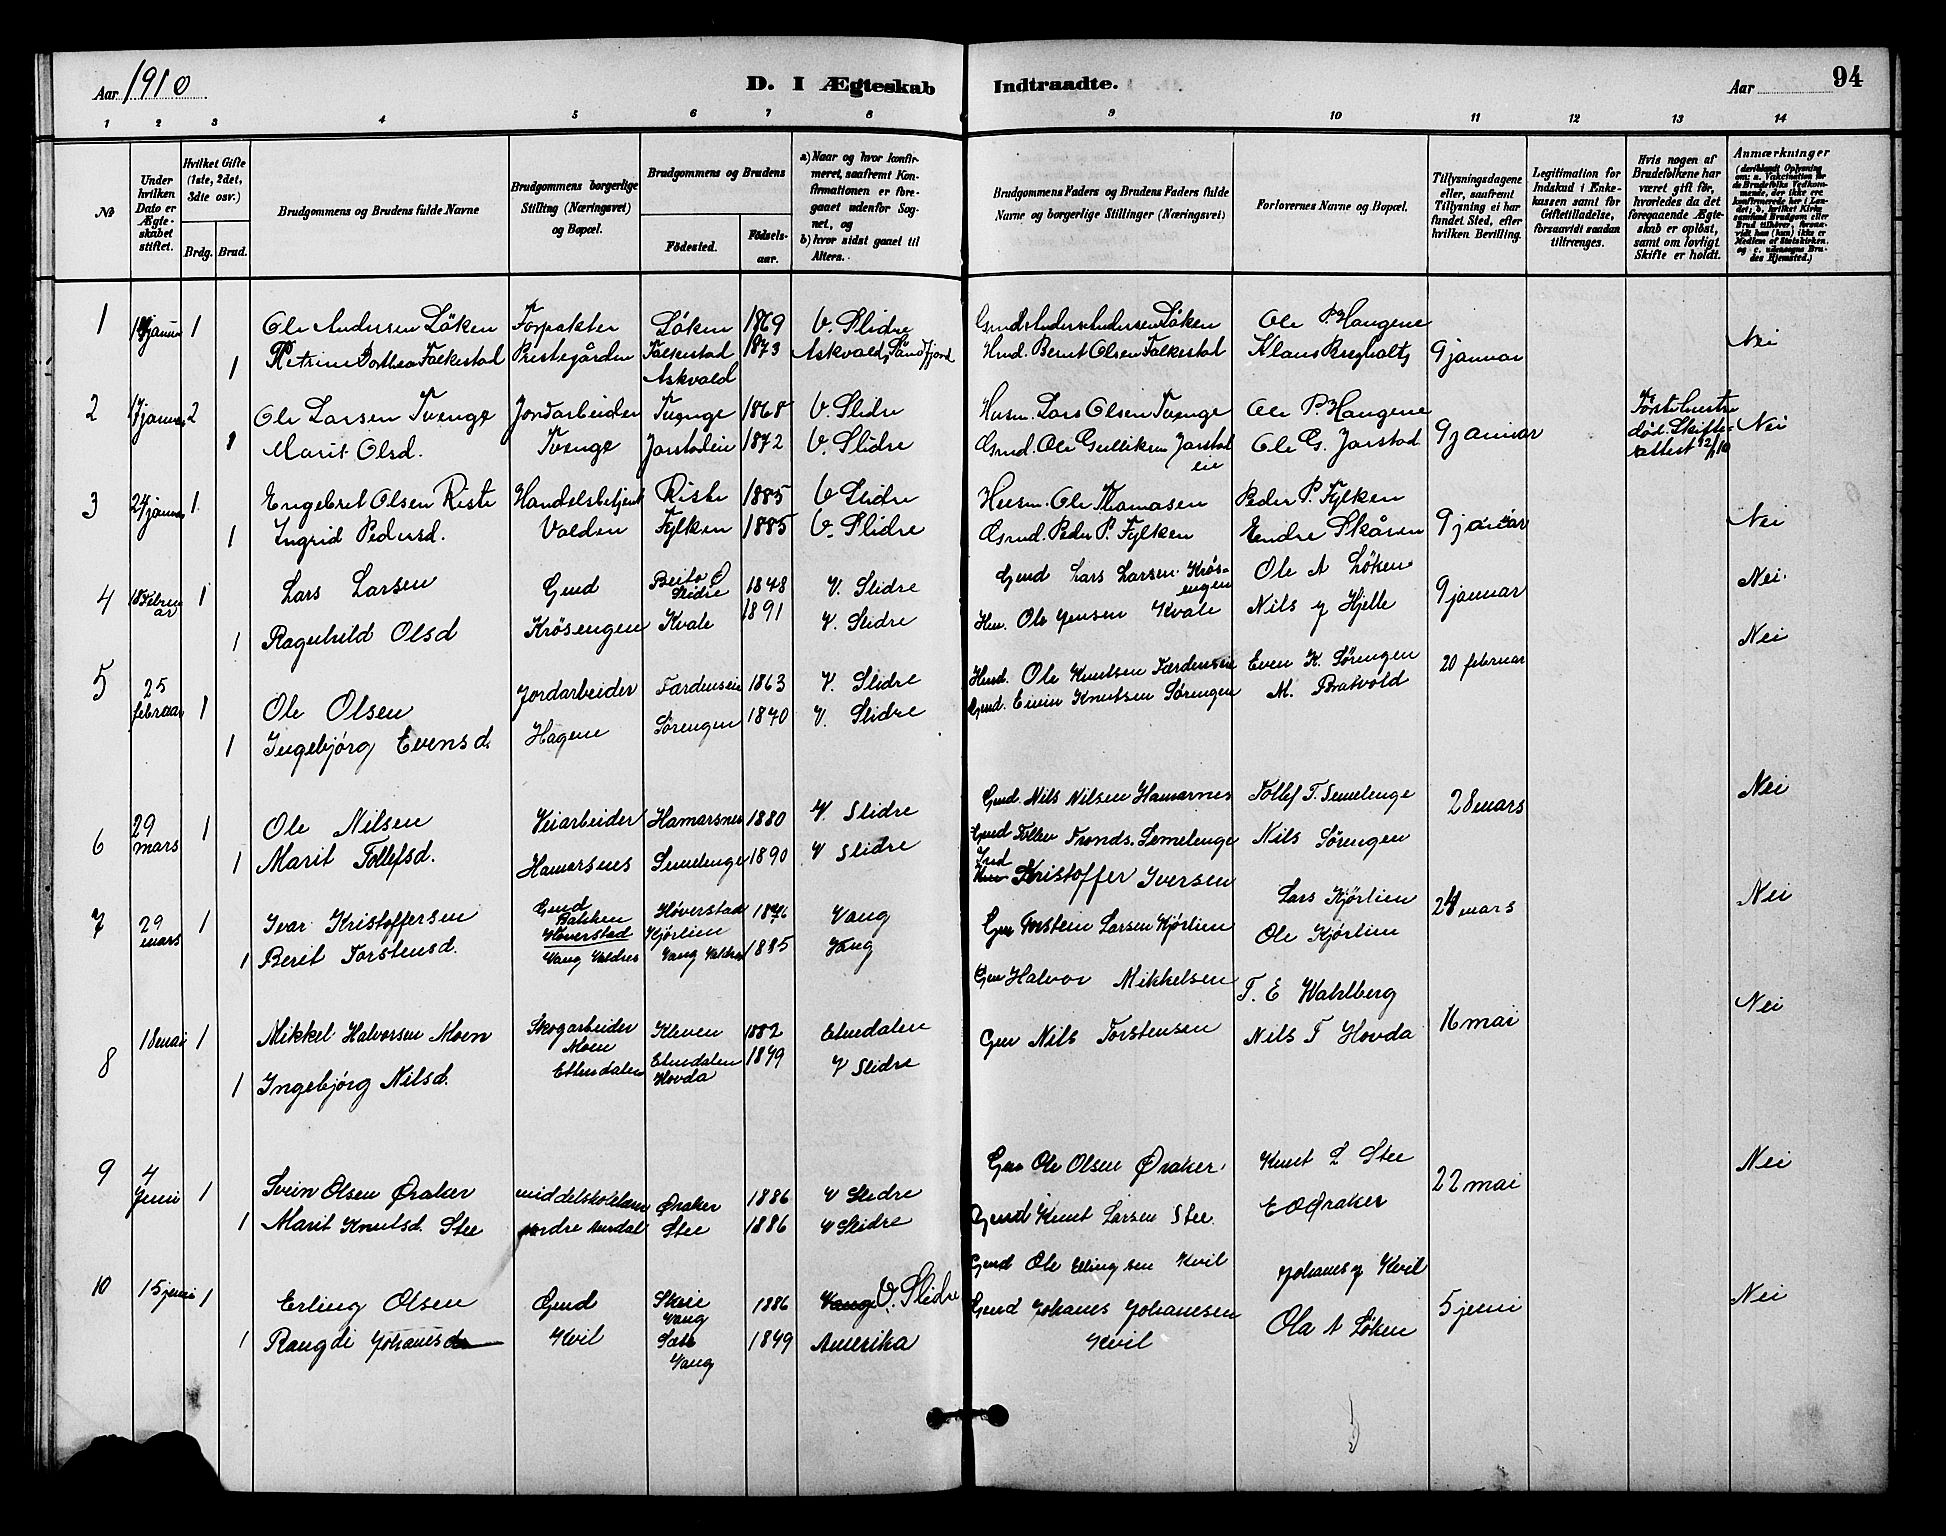 Aar 1910
D. I Ægteskab Indtraadte.
Aar 94
1 2 3 4 5 6 7 8 9 10 11 12 13 14
No
Under hvilken Dato er Ægteskabet stiftet.
Hvilket Gifte (1ste, 2det, 3die osv.)
Brdg. Brud.
Brudgommens og Brudens fulde Navne
Brudgommens borgerlige Stilling (Næringsvei) og Bopæl.
Brudgommens og Brudens
Fødested.
Fødselsaar.
a) Naar og hvor konfirmeret, saafremt Konfirmationen er foregaaet udenfor Sognet, og
b) hvor sidst gaaet til Alters.
Brudgommens Faders og Brudens Faders fulde Navne og borgerlige Stillinger (Næringsvei)
Forlovernes Navne og Bopæl.
Tillysningsdagene eller, saafremt Tillysning ei har fundet Sted, efter hvilken Bevilling.
Legitimation for Indskud i Enkekassen samt for Giftetilladelse, forsaavidt saadan tiltrænges.
Hvis nogen af Brudefolkene har været gift før, hvorledes da det foregaaende Ægteskab er opløst, samt om lovligt Skifte er holdt.
Anmærkninger
1 januar 1 Ole Andersen Løken Forpakter Løken 1869 V. Slidre Anders Andersen Løken Ole P. Haugene
1 Petrine Dorthea Falkestad Prestegården Falkestad 1873 Askvald, Søndfjord Bernt Olsen Falkestad Klaus Bregholts 9 januar Nei
Askvold
2 17 januar 2 Ole Larsen Tvenge Jordarbeider Tvenge 1868 V. Slidre Husm. Lars Olsen Tvenge Ole P. Haugene Første hustru
1 Marit Olsd. Tvenge Jarstadeie 1872 V. Slidre Grud. Ole Gulliksen Jarstad Ole G. Jarstad 9 januar død. Skifte- Nei
eie attest 12/1 10
3 24 januar 1 Engebret Olsen Riste Handelsbetjent Riste 1885 V Slidre Husm. Ole Thomasen Peder P. Fylken
1 Ingrid Pedersd. Volden Fylken 1885 V. Slidre Grud. Peder P. Fylken Endre Skåren 9 januar Nei
4 18 Februar 1 Lars Larsen Grud Beito Ø Slidre 1848 V. Slidre Grud Lars Larsen Krøsengen Ole A Løken 9 januar Nei
1 Ragnhild Olsd Krøsengen Kvale 1891 V. Slidre Hm. Ole Jensen Kvale Nils J Hjelle Nei
5 25 februar 1 Ole Olsen Jordarbeider Færdenseie 1863 V. Slidre Husd. Ole Knutsen Færdenseie Even K. Sørengen 20 februar
1 Ingebjørg Evensd. Hagene Sørengen 1870 V. Slidre Grud. Eivin Knutsen Sørengen M. Bratvold
6 29 mars 1 Ole Nilsen Veiarbeider Hamarsnes 1880 V Slidre Grud. Nils Nilsen Hamarnes Tollef T. Semelenge 28 mars Nei
1 Marit Tollefsd. Hamarsnes Semelenge 1890 V Slidre Grud Tollev Tronds. Semelenge Nils Sørengen
7 29 mars 1 Ivar Kristoffersen Grud Bakken Høverstad Høverstad 1876 Vang Kristoffer Iversen Lars Kjørlien 28 mars Nei
1 Berit Torstensd. Vang Valdres Kjørlien Vang Valdres 1885 Vang Torstein Larsen Kjørlien Ole Kjørlien
8 18 mai 1 Mikkel Halvorsen Moen Skogarbeider Moen Kleven 1882 Etnedalen Halvor Mikkelsen T. E Wahlberg 16 mai Nei
1 Ingebjørg Nilsd. Etnedalen Etnedalen Hovda 1879 V Slidre Nils Torstensen Nils T Hovda
9 4 Juni 1 Svein Olsen Øraker middelskolelærer Øraker 1886 V Slidre Ole Olsen Øraker Knut L Stee 22 mai Nei
1 Marit Knutsd. Stee nordre Aurdal Stee 1886 V Slidre Grud Knut Larsen Stee. E O Øraker
10 15 juni 1 Erling Olsen Grud Skeie Vang 1886 Vang V. Slidre Grud Ole Ellingsen Kvil Johanes J Kvil 5 juni Nei
1 Rangdi Johanesd Kvil Vang 1879 Amerika Grud Johanes Johanesen Kvil Ola A Løken